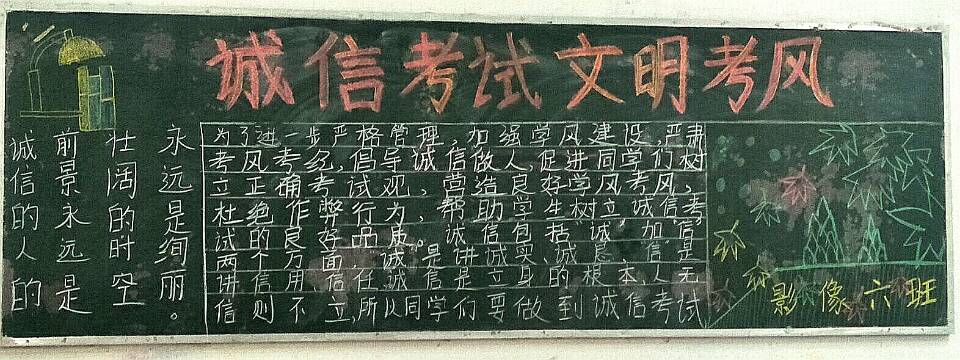 诚信考试文明考风
诚信的人的
前景永远是
壮阔的时空
永远是绚丽。
为了进一步严格管理,加强学风建设,严肃
考风考纪,倡导诚信做人,促进同学们树
立正确考试观,营造良好学风考风,
杜绝作弊行为,帮助学生树立"诚信"考
试的良好品质。诚信包括"诚"加"信"
两个方面,"诚"是讲诚实、"信"是
讲信用信任,诚信是立身的根本,人无
信则不立,所以同学们要做到诚信考试
影像六班